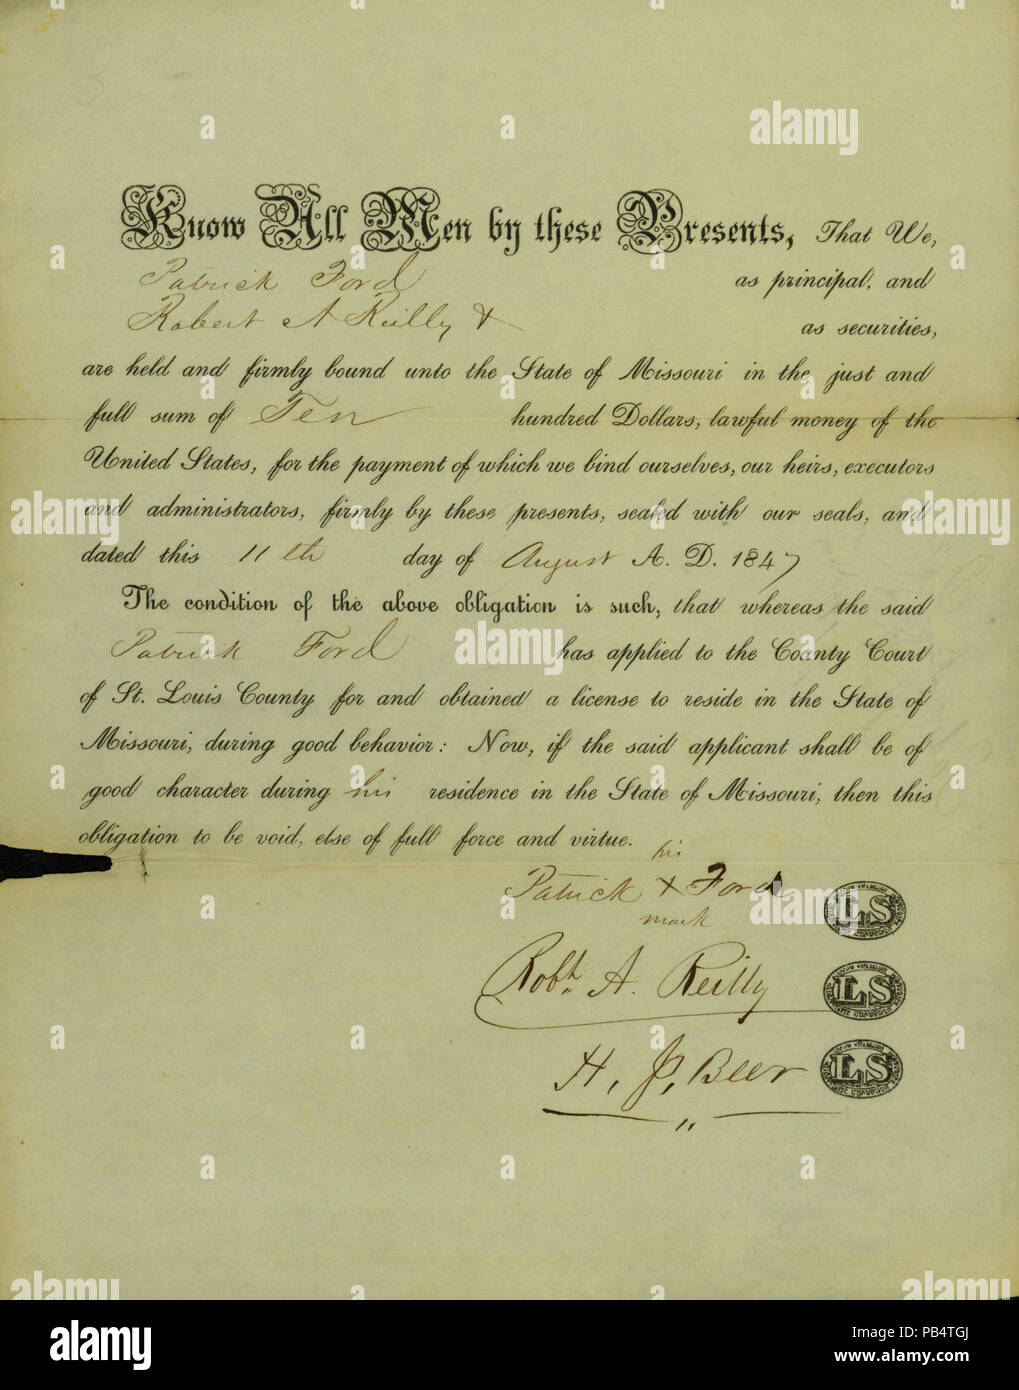 Know All Men by these Presents, That We,
Patrick Ford as principal, and
Robert A Reilly & as securities,
are held and firmly bound unto the State of Missouri in the just and
full sum of Ten hundred Dollars, lawful money of the
United States, for the payment of which we bind ourselves, our heirs, executors
and administrators, firmly by these presents, sealed with our seals, and
dated this 11th day of August A. D. 1847
The condition of the above obligation is such, that whereas the said
Patrick Ford has applied to the County Court
of St. Louis County for and obtained a license to reside in the State of
Missouri, during good behavior: Now, if the said applicant shall be of
good character during his residence in the State of Missouri, then this
obligation to be void, else of full force and virtue.
his
Patrick X Ford LS
mark
Robt. A. Reilly LS
H. J. Beer LS
alamy
Image ID: PB4TGJ
www.alamy.com